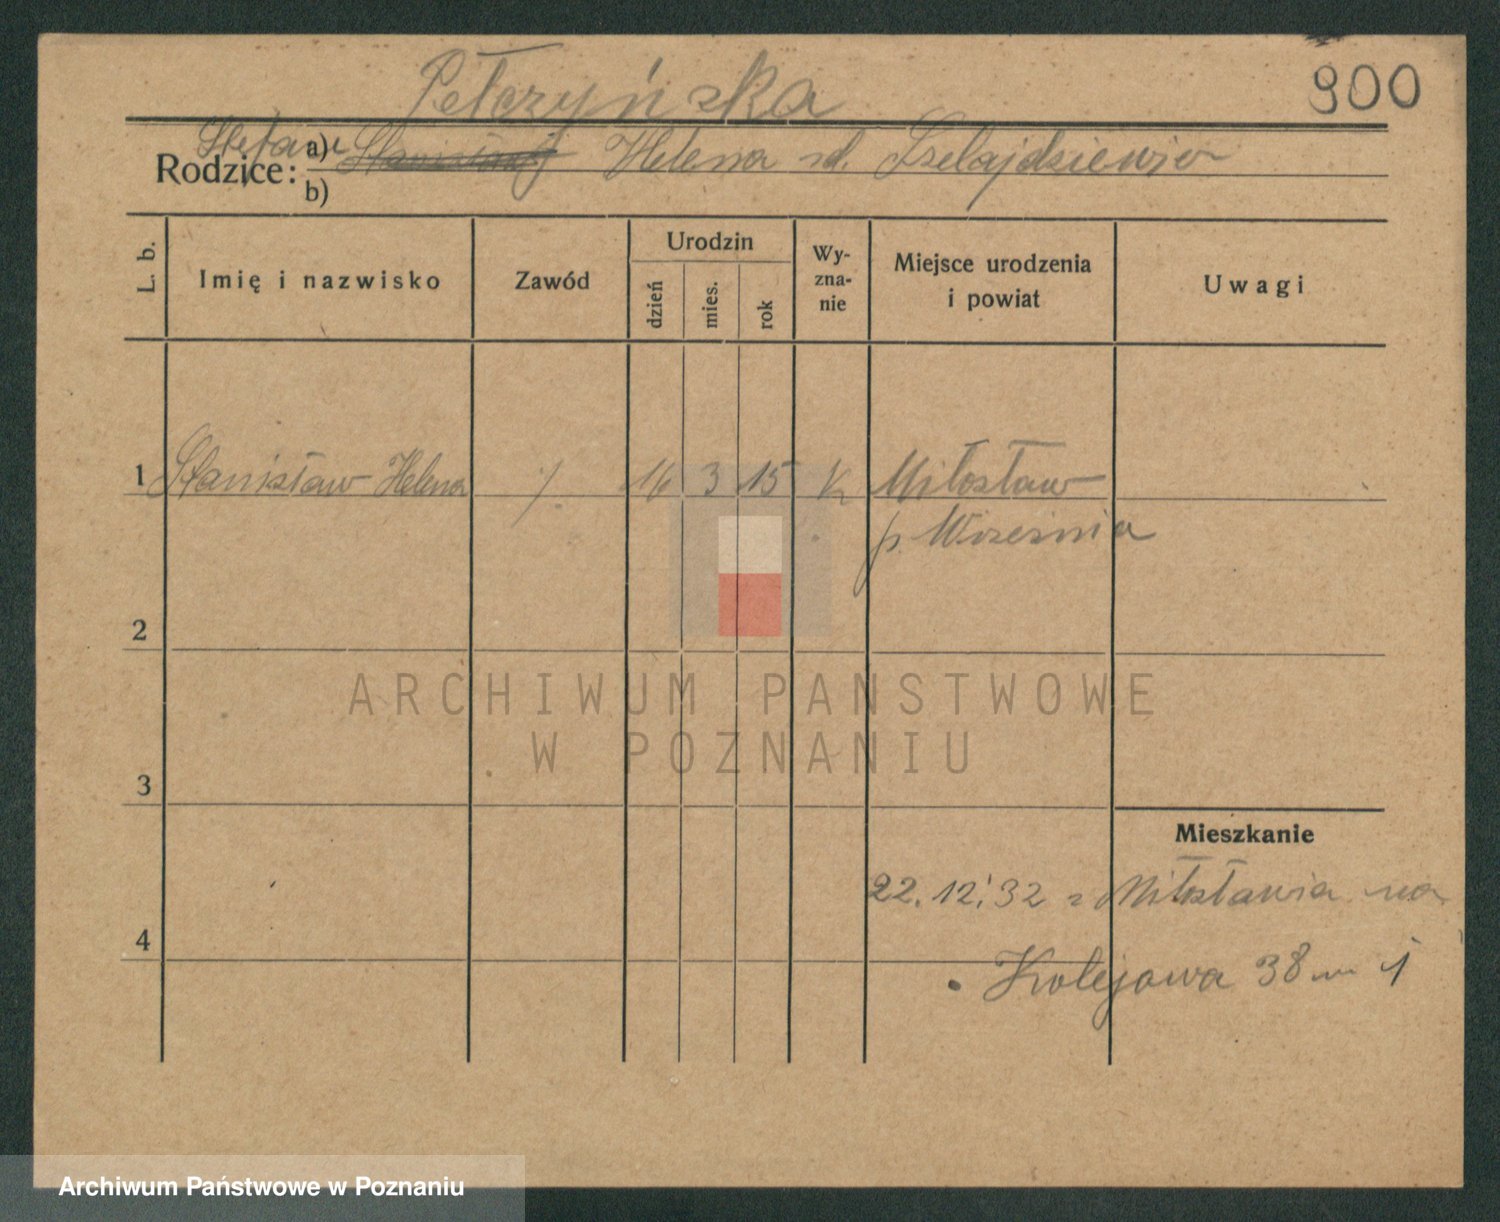 Pełczyńska
900
Stefan
Rodzice: a) Stanisław Helena zd. Szelajdziewicz
b)
L. b. Imię i nazwisko Zawód Urodzin dzień mies. rok Wy-zna-nie Miejsce urodzenia i powiat Uwagi
1 Stanisław Helena 16 3 15 K Miłosław
p. Września
2
ARCHIWUM PAŃSTWOWE
W POZNANIU
3
Mieszkanie
22.12.32 z Miłosławia na
4
Kolejowa 38 m 1
Archiwum Państwowe w Poznaniu